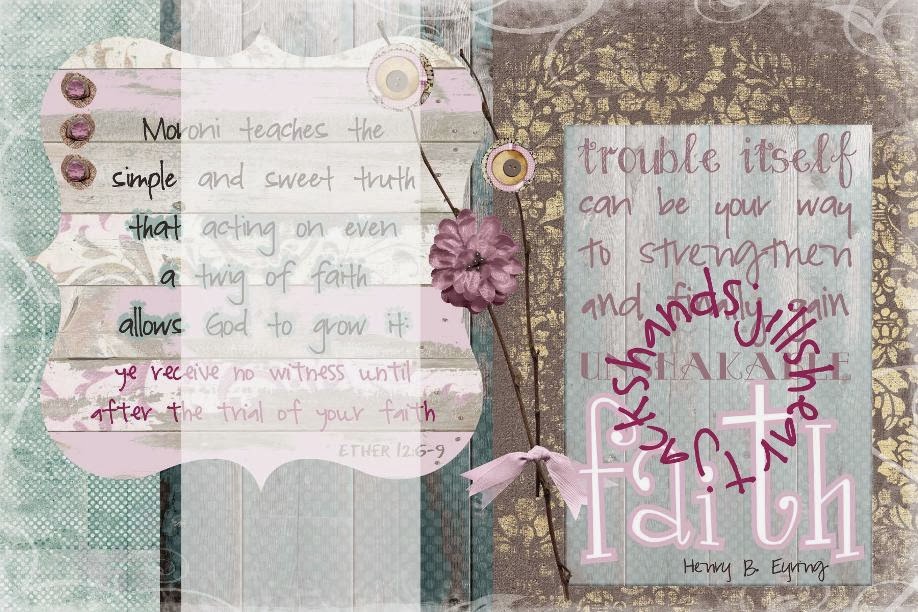 Moroni teaches the
simple and sweet truth
that acting on even
a twig of faith
allows God to grow it:
ye receive no witness until
after the trial of your faith
ETHER 12:6-9
trouble itself
can be your way
to strengthen
and finally gain
UNSHAKABLE
faith
Henry B. Eyring